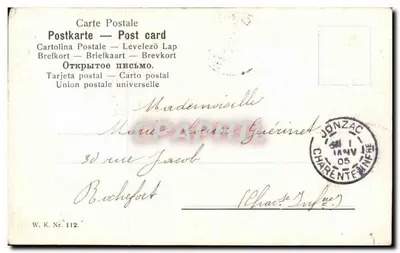 Carte Postale
Postkarte — Post card
Cartolina Postale — Levelező Lap
Brefkort — Briefkaart — Brevkort
Открытое письмо.
Tarjeta postal — Carto postal
Union postale universelle
Mademoiselle
Marie Guérinet
30 rue Jacob
Rochefort
(Charte Infre)
JONZAC
1
JANV
05
CHARENTE INFRE
W. K. Nr. 112.